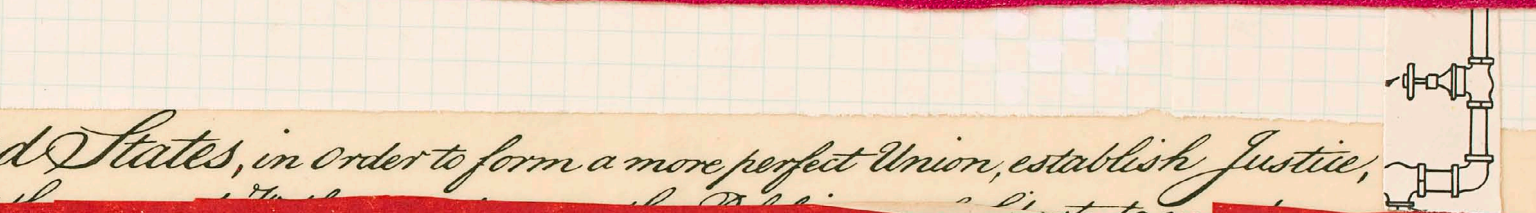 d States, in order to form a more perfect Union, establish Justice,